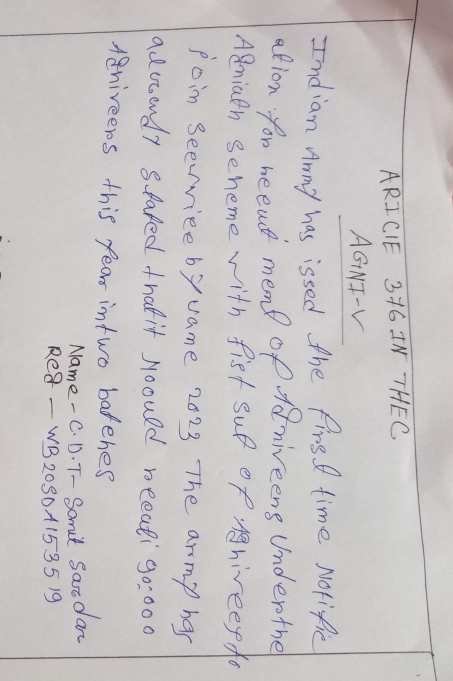 ARICIE 376 IN THEC
AGNI-V
Indian Army has issed the first time Notific
ation for recuit ment of Adnireens Under the
Adniath Scheme with fist sub of Aghireey to
join seewriee by vame 2023 The army has
adveendy stated that it Noould recuti 90:000
Adnireens this year in two batehes
Name - C.D.T - Somit Sardar
Red - WB20SDA153519